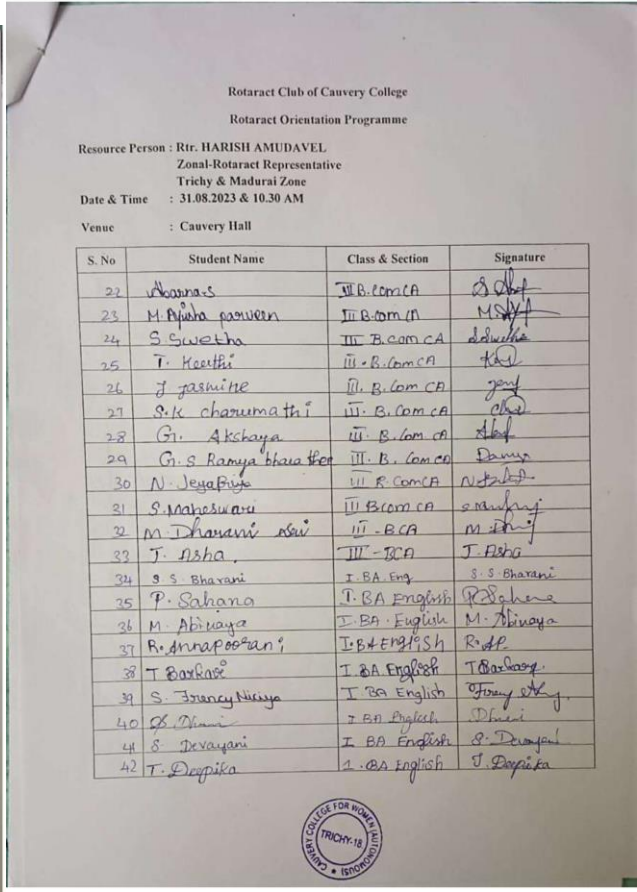 Rotaract Club of Cauvery College
Rotaract Orientation Programme
Resource Person : Rtr. HARISH AMUDAVEL
Zonal-Rotaract Representative
Trichy & Madurai Zone
Date & Time : 31.08.2023 & 10.30 AM
Venue : Cauvery Hall
S. No Student Name Class & Section Signature
22 Abarna.S III B.Com CA
23 M. Ayisha parveen III B.com CA
24 S. Swetha III B.com CA S.Swetha
25 T. Keerthi III - B.Com CA
26 J Jasmine III. B.Com CA
27 S.K charumathi III. B.Com CA
28 G. Akshaya III. B.Com CA
29 G.S Ramya III. B.Com CA
30 N. JeyaPriya III B.ComCA
31 S. Maheswari III BCom CA
32 M. Dharani III - BCA
33 J. Asha. III - BCA J. Asha
34 S S. Bharani I. BA. Eng S. S. Bharani
35 P. Sahana I. BA English P. Sahana
36 M. Abinaya I. BA. English M. Abinaya
37 R. Annapoorani I. BA English R. AP.
38 T Barkavi I. BA. English
39 S. Francy I BA English
40 I BA English
41 S. Devayani I BA English S. Devayani
42 T. Deepika 1. BA English T. Deepika
CAUVERY COLLEGE FOR WOMEN (AUTONOMOUS)
TRICHY-18